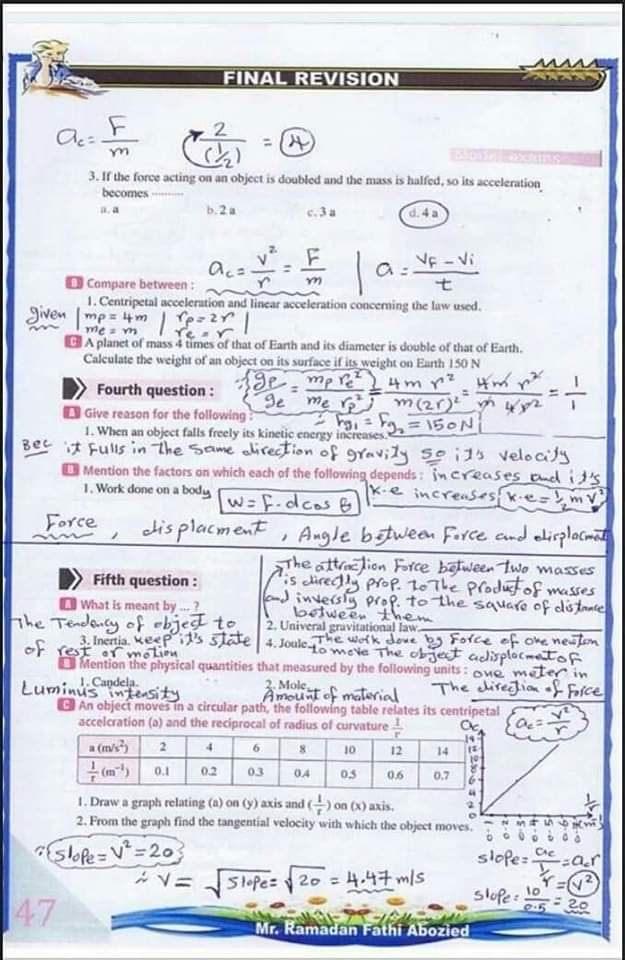 FINAL REVISION
ac = F/m   2/(1/2) = 4
Model exams
3. If the force acting on an object is doubled and the mass is halfed, so its acceleration
becomes ..........
a. a   b. 2 a   c. 3 a   d. 4 a
ac = v²/r = F/m | a = (VF - Vi)/t
B Compare between :
1. Centripetal acceleration and linear acceleration concerning the law used.
given | mp = 4m | rp = 2r |
me = m | re = r
C A planet of mass 4 times of that of Earth and its diameter is double of that of Earth.
Calculate the weight of an object on its surface if its weight on Earth 150 N
∵ gp/ge = mp re²/me rp² = 4m r²/m(2r)² = 4m r²/m 4r² = 1/1
∴ Fg1 = Fg2 = 150N
Fourth question :
A Give reason for the following :
1. When an object falls freely its kinetic energy increases.
Bec it fulls in the same direction of gravity so it's velocity
increases and it's
k.e increases k.e = 1/2 m V²
B Mention the factors on which each of the following depends :
1. Work done on a body
W = F.d cos θ
Force, displacment, Angle between Force and displacmet
Fifth question :
The attraction Force between two masses
is directly prop. to the product of masses
and inversly prop. to the square of distance
between them
A What is meant by ... ?
2. Univeral gravitational law.
The Tendency of object to
3. Inertia. keep it's state
of rest or motion
4. Joule. The work done by Force of one newton
to move the object a displacmet of
one meter in
The direction of Force
B Mention the physical quantities that measured by the following units :
1. Candela.   2. Mole.
Luminus intensity   Amount of material
C An object moves in a circular path, the following table relates its centripetal
accelcration (a) and the reciprocal of radius of curvature 1/r
a (m/s²) 2 4 6 8 10 12 14
1/r (m⁻¹) 0.1 0.2 0.3 0.4 0.5 0.6 0.7
1. Draw a graph relating (a) on (y) axis and (1/r) on (x) axis.
2. From the graph find the tangential velocity with which the object moves.
ac
ac = v²/r
14
12
10
8
6
4
2
0
1/r
∵ slope = V² = 20
∴ V = √slope = √20 = 4.47 m/s
slope = ac/(1/r) = ac r
= V²
slope = 10/0.5 = 20
47
Mr. Ramadan Fathi Abozied